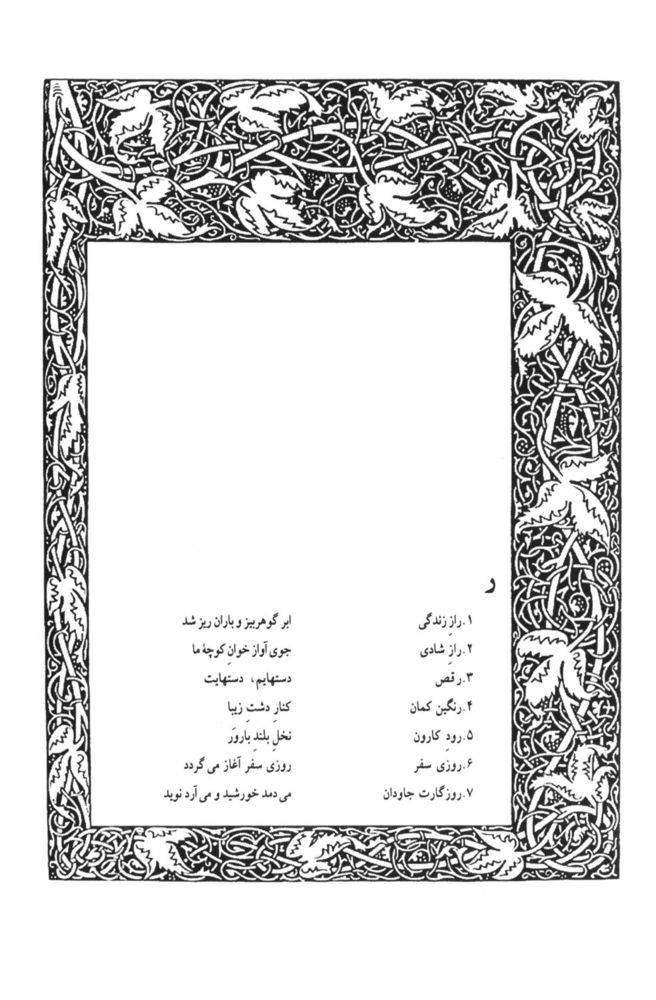 ر
۱.رازِ زندگی ابر گوهربیز و باران ریز شد
۲.رازِ شادی جوی آواز خوانِ کوچهٔ ما
۳.رقص دستهایم، دستهایت
۴.رنگین کمان کنارِ دشتِ زیبا
۵.رودِ کارون نخلِ بلندِ بارور
۶.روزی سفر روزی سفر آغاز می گردد
۷.روزگارت جاودان می دمد خورشید و می آرد نوید